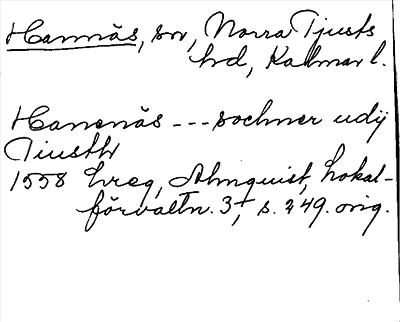 Hannäs, sn, Norra Tjusts
hd, Kalmar l.
Hanenäs --- sochner udij
Tiusth
1558 hreg, Almquist, Lokal-
förvaltn. 3, s. 249. orig.